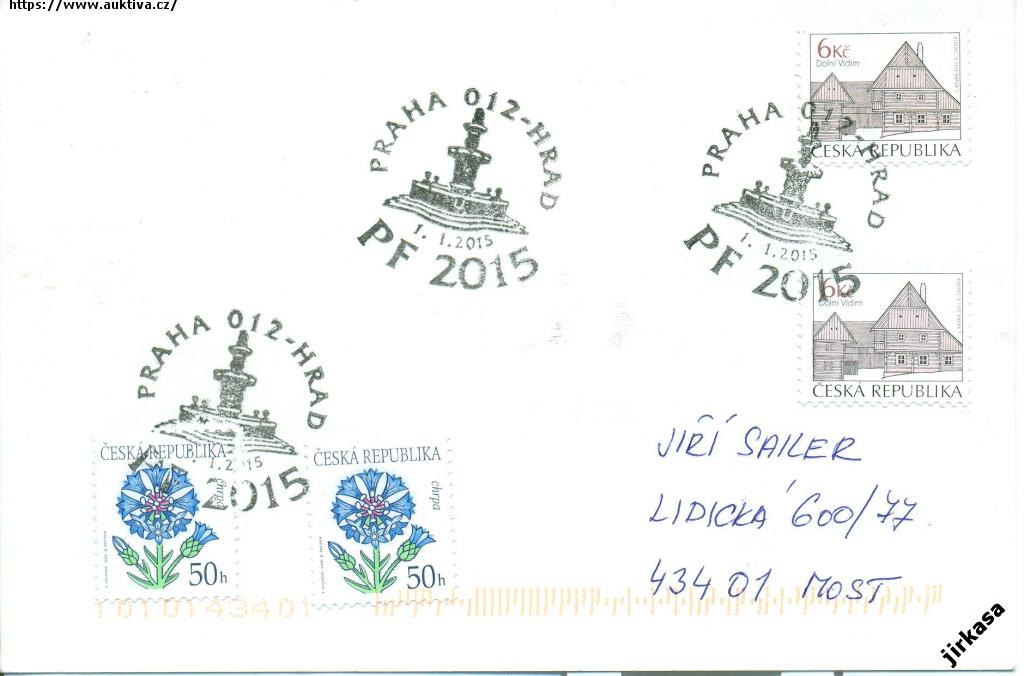 https://www.auktiva.cz/
6Kč
Dolní Vidim
ČESKÁ REPUBLIKA
PRAHA 012-HRAD
1. 1. 2015
PF 2015
PRAHA 012-HRAD
1. 1. 2015
PF 2015
6Kč
Dolní Vidim
ČESKÁ REPUBLIKA
PRAHA 012-HRAD
1. 2015
2015
ČESKÁ REPUBLIKA
chrpa
50h
ČESKÁ REPUBLIKA
chrpa
50h
JIŘÍ SAILER
LIDICKÁ 600/77
43401 MOST
1010143401
jirkasa